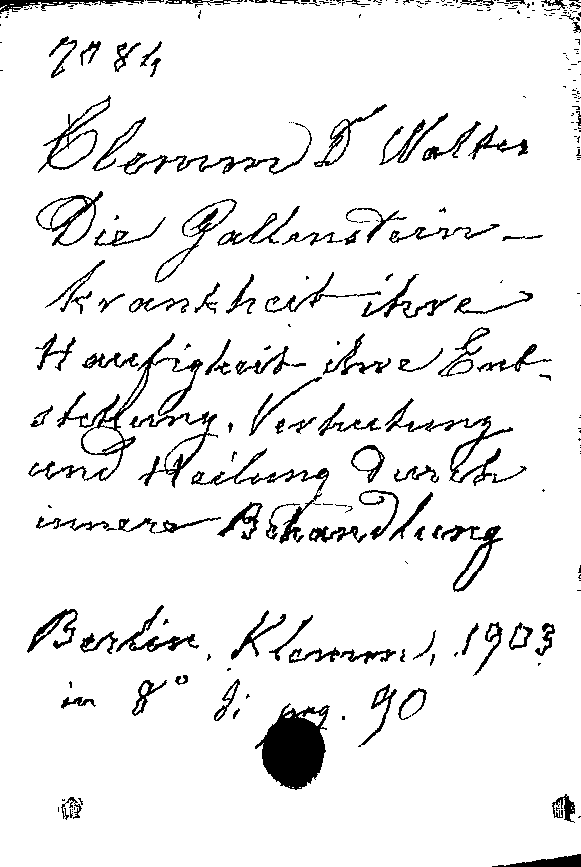 7784
Clemm Dr Walter
Die Gallenstein-
krankheit ihre
Haufigkeit ihre Ent-
stehung, Verhutung
und Heilung durch
innere Behandlung
Berlin, Klemm, 1903
in 8° di pag. 90